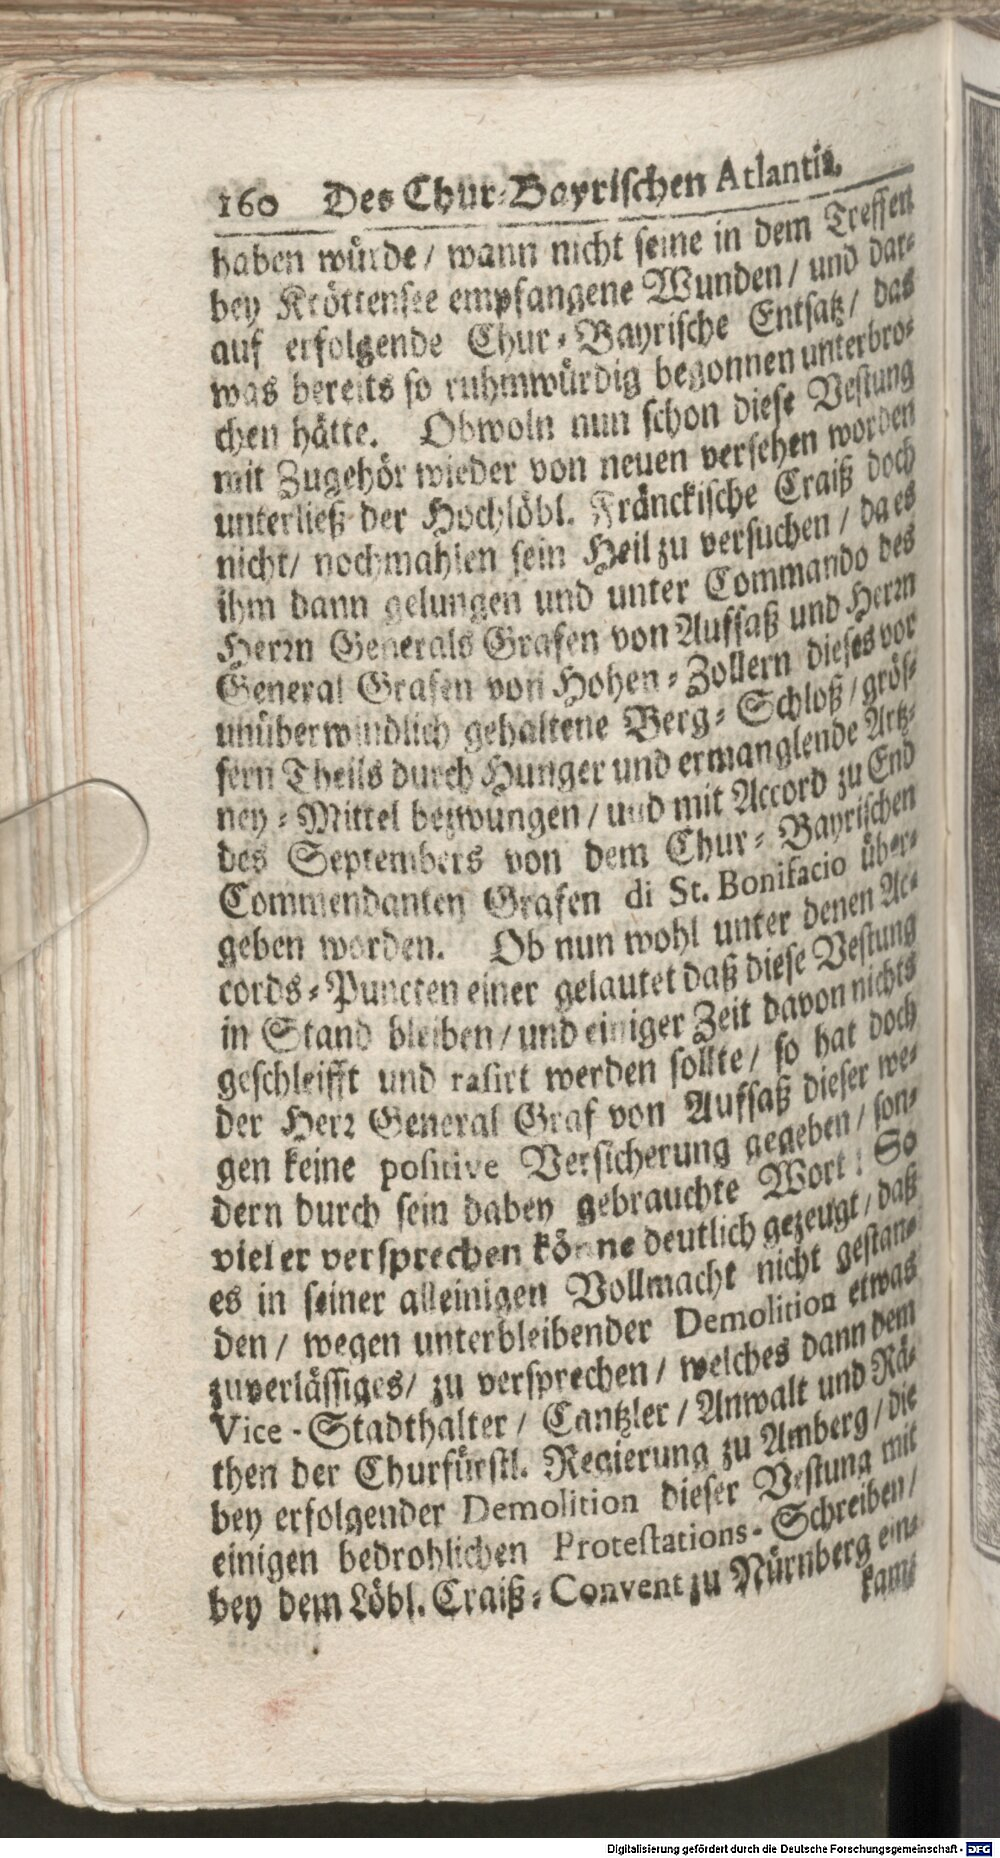 160 Des Chur-Bayrischen Atlantis,
haben würde / wann nicht seine in dem Treffen
bey Kröttensee empfangene Wunden / und dar-
auf erfolgende Chur-Bayrische Entsatz / das
was bereits so ruhmwürdig begonnen unterbro-
chen hätte. Obwoln nun schon diese Vestung
mit Zugehör wieder von neuen versehen worden
unterließ der Hochlöbl. Fränckische Craiß doch
nicht / nochmahlen sein Heil zu versuchen / da es
ihm dann gelungen und unter Commando des
Herrn Generals Grafen von Aufsaß und Herrn
General Grafen von Hohen-Zollern dieses vor
unüberwindlich gehaltene Berg-Schloß / grös-
sern Theils durch Hunger und ermanglende Artz-
ney-Mittel bezwungen / und mit Accord zu End
des Septembers von dem Chur-Bayrischen
Commendanten Grafen di St. Bonifacio über-
geben worden. Ob nun wohl unter denen Ac-
cords-Puncten einer gelautet daß diese Vestung
in Stand bleiben / und einiger Zeit davon nichts
geschleifft und rasirt werden sollte / so hat doch
der Herr General Graf von Aufsaß dieser we-
gen keine positive Versicherung gegeben / son-
dern durch sein dabey gebrauchte Wort: So
viel er versprechen könne deutlich gezeugt / daß
es in seiner alleinigen Vollmacht nicht gestan-
den / wegen unterbleibender Demolition etwas
zuverlässiges / zu versprechen / welches dann dem
Vice-Stadthalter / Cantzler / Anwalt und Rä-
then der Churfürstl. Regierung zu Amberg / die
bey erfolgender Demolition dieser Vestung mit
einigen bedrohlichen Protestations-Schreiben /
bey dem Löbl. Craiß-Convent zu Nürnberg ein-
kam
Digitalisierung gefördert durch die Deutsche Forschungsgemeinschaft - DFG